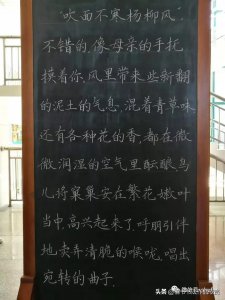 “吹面不寒杨柳风”,
不错的,像母亲的手托
摸着你,风里带来些新翻
的泥土的气息,混着青草味
还有各种花的香,都在微
微润湿的空气里酝酿,鸟
儿将窠巢安在繁花嫩叶
当中,高兴起来了,呼朋引伴
地卖弄清脆的喉咙,唱出
宛转的曲子,
头条